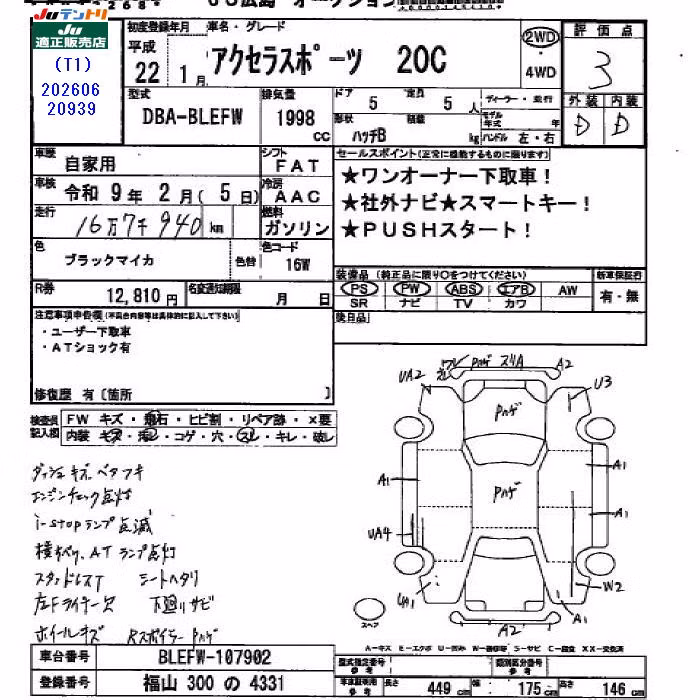 Juテントリ
適正販売店
(T1)
202606
20939
初度登録年月 車名・グレード
平成 22 1月
アクセラスポーツ 20C
2WD
4WD
評価点
3
外装 内装
D D
型式
DBA-BLEFW
排気量
1998 cc
ドア 5
定員 5 人
形状 ハッチB
積載 kg
ディーラー・並行
モデル年式 年
ハンドル 左・右
車歴 自家用
シフト FAT
車検 令和 9年 2月 ( 5日)
冷房 AAC
走行 16万7千940 km
燃料 ガソリン
色 ブラックマイカ
色替
色コード 16W
R券 12,810 円
名変通知期限 月 日
セールスポイント(正常に機能するものに限ります)
★ワンオーナー下取車!
★社外ナビ★スマートキー!
★PUSHスタート!
装備品 (純正品に限り○をつけてください)
新車保証書
PS PW ABS エアB AW
有・無
SR ナビ TV カワ
後日品
注意事項申告欄(不具合内容等は具体的に記入して下さい)
・ユーザー下取車
・ATショック有
修復歴 有〔箇所 〕
検査員記入欄
FW キズ・飛石・ヒビ割・リペア跡・×要
内装 キズ・汚レ・コゲ・穴・スレ・キレ・破レ
ダッシュキズ、ベタツキ
エンジンチェック点灯
i-stopランプ点滅
横すべり、ATランプ点灯
スタッドレスT シートヘタリ
左Fライナー欠 下廻リサビ
ホイールキズ RスポイラーPハゲ
UA2
Pハゲ スリA
A2
U3
Pハゲ
A1
A1
Pハゲ
A1
A1
UA4
W2
UA1
A1
A2
スペア
A-キズ E-エクボ U-凹み W-補修跡 S-サビ C-腐食 XX-交換済
車台番号 BLEFW-107902
登録番号 福山 300 の 4331
型式指定番号 参考
類別区分番号 参考
車体証明用参考
長さ 449 cm
幅 175 cm
高さ 146 cm